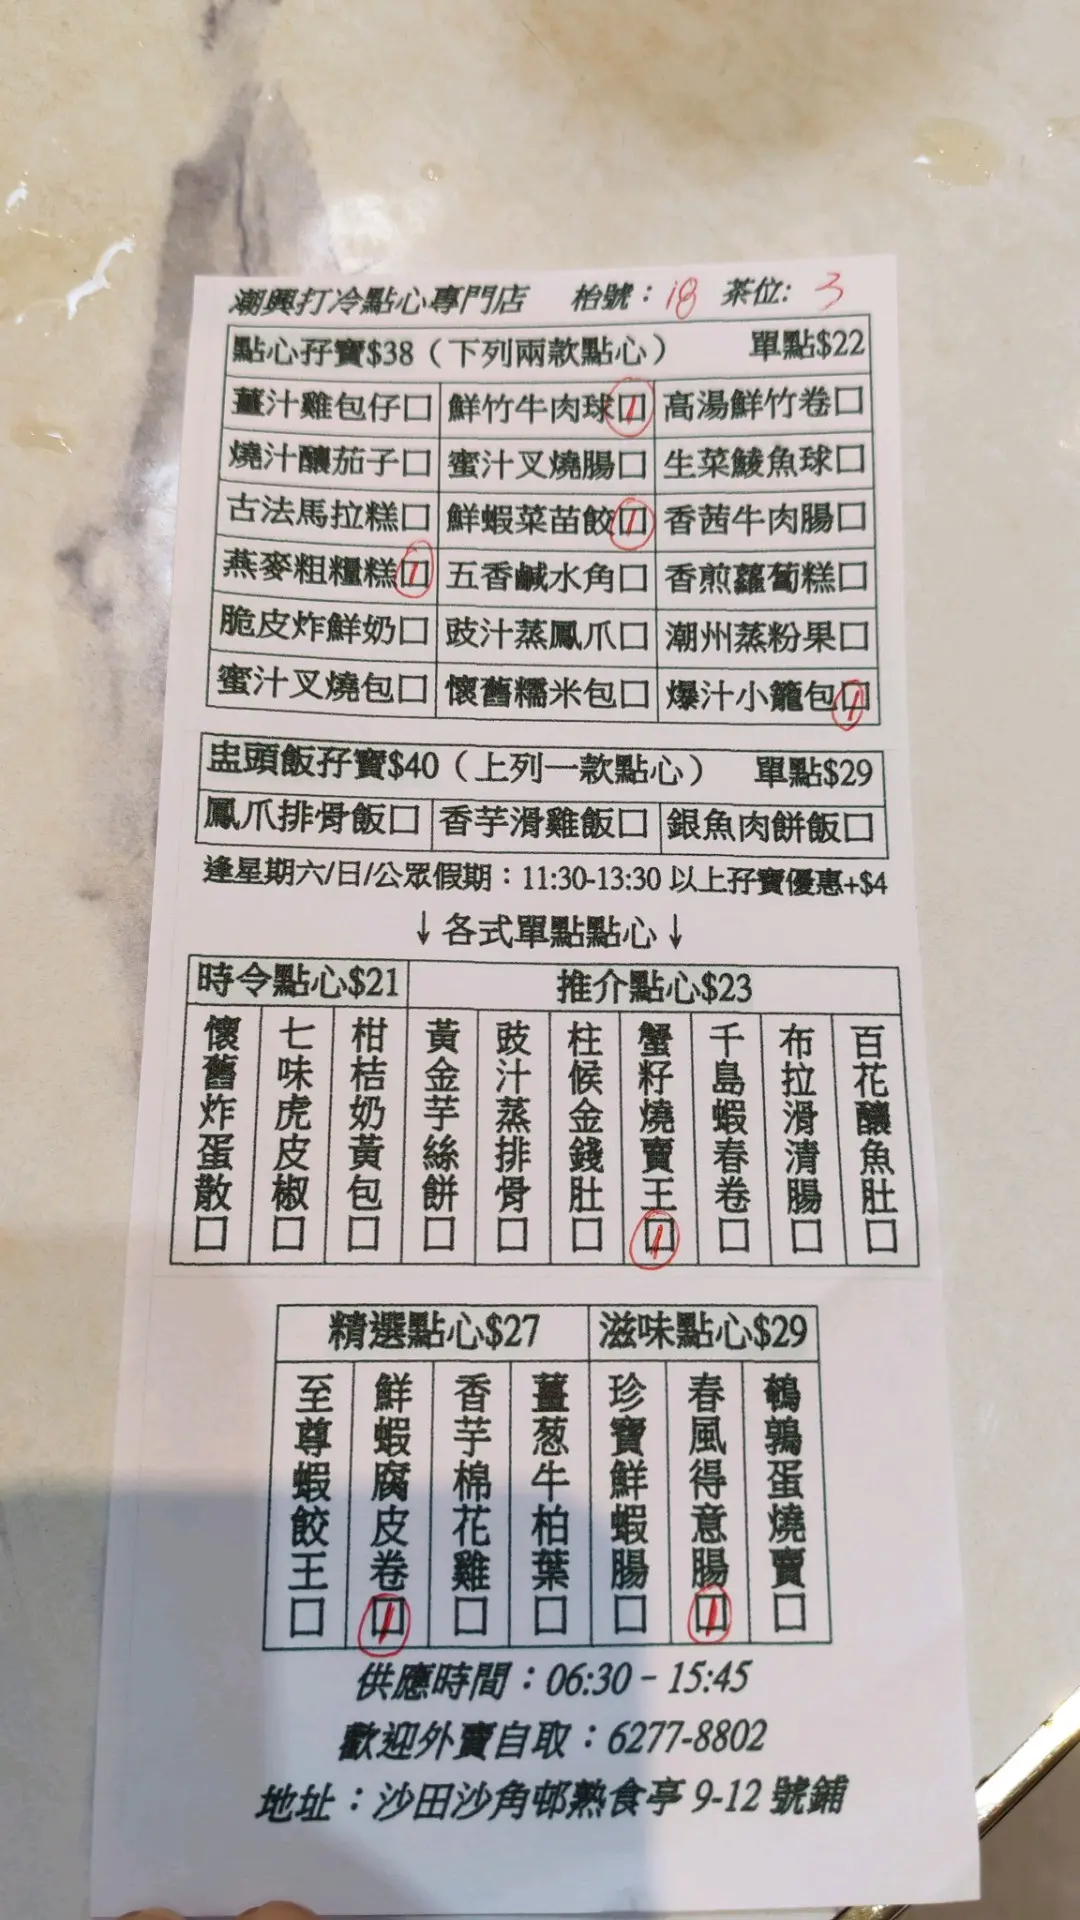 潮興打冷點心專門店 枱號：18 茶位：3
點心孖寶$38（下列兩款點心） 單點$22
薑汁雞包仔口 鮮竹牛肉球口1 高湯鮮竹卷口
燒汁釀茄子口 蜜汁叉燒腸口 生菜鯪魚球口
古法馬拉糕口 鮮蝦菜苗餃口1 香茜牛肉腸口
燕麥粗糧糕口1 五香鹹水角口 香煎蘿蔔糕口
脆皮炸鮮奶口 豉汁蒸鳳爪口 潮州蒸粉果口
蜜汁叉燒包口 懷舊糯米包口 爆汁小籠包口1
盅頭飯孖寶$40（上列一款點心） 單點$29
鳳爪排骨飯口 香芋滑雞飯口 銀魚肉餅飯口
逢星期六/日/公眾假期：11:30-13:30 以上孖寶優惠+$4
↓各式單點點心↓
時令點心$21 推介點心$23
懷舊炸蛋散口
七味虎皮椒口
柑桔奶黃包口
黃金芋絲餅口
豉汁蒸排骨口
柱候金錢肚口
蟹籽燒賣王口1
千島蝦春卷口
布拉滑清腸口
百花釀魚肚口
精選點心$27 滋味點心$29
至尊蝦餃王口
鮮蝦腐皮卷口1
香芋棉花雞口
薑葱牛柏葉口
珍寶鮮蝦腸口
春風得意腸口1
鵪鶉蛋燒賣口
供應時間：06:30－15:45
歡迎外賣自取：6277-8802
地址：沙田沙角邨熟食亭 9-12 號鋪